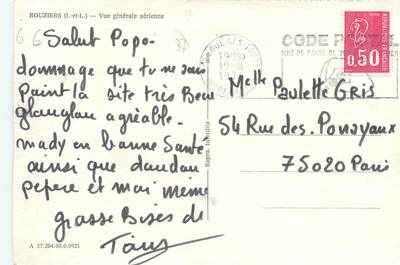 ROUZIERS (I.-et-L.) — Vue générale aérienne
Salut Popo-
dommage que tu ne sois
point la site très Beau
glauglau agréable.
mady en bonne Santé
ainsi que daudau
pepere et moi meme
grosse Bises de
A 37.204.00.0.9921
Repro. interdite
CODE POSTAL
MOT DE PASSE DE
0,50
Melle Paulette GRIS
54 Rue des Ponoyaux
75020 Paris